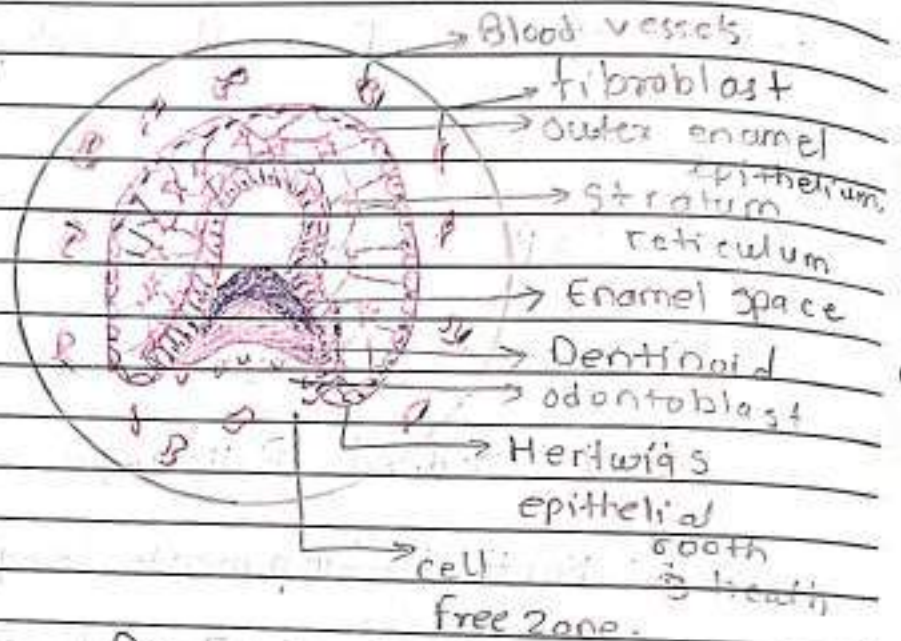 Blood vessels
fibroblast
outer enamel
epithelium,
stratum
reticulum
Enamel space
Dentinoid
odontoblast
Hertwigs
epithelial
rooth
sheath
cell
free zone.